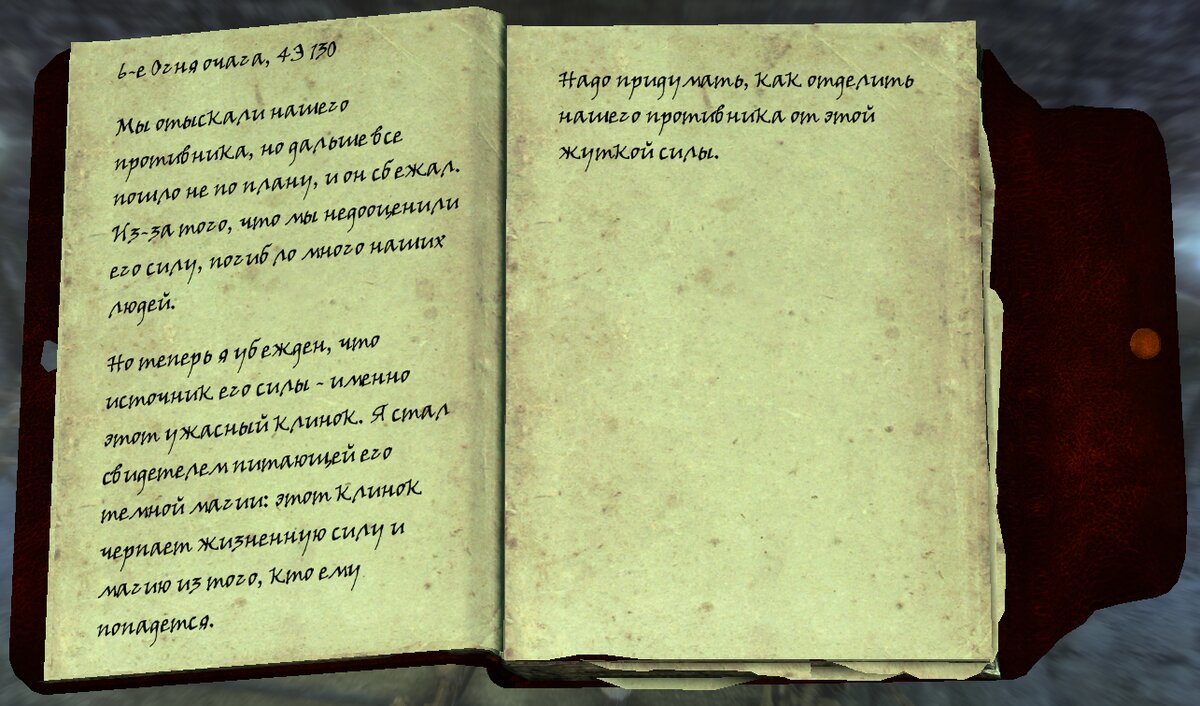 6-е Огня очага, 4Э 130
Мы отыскали нашего
противника, но дальше все
пошло не по плану, и он сбежал.
Из-за того, что мы недооценили
его силу, погибло много наших
людей.
Но теперь я убежден, что
источник его силы - именно
этот ужасный клинок. Я стал
свидетелем питающей его
темной магии: этот клинок
черпает жизненную силу и
магию из того, кто ему
попадется.
Надо придумать, как отделить
нашего противника от этой
жуткой силы.